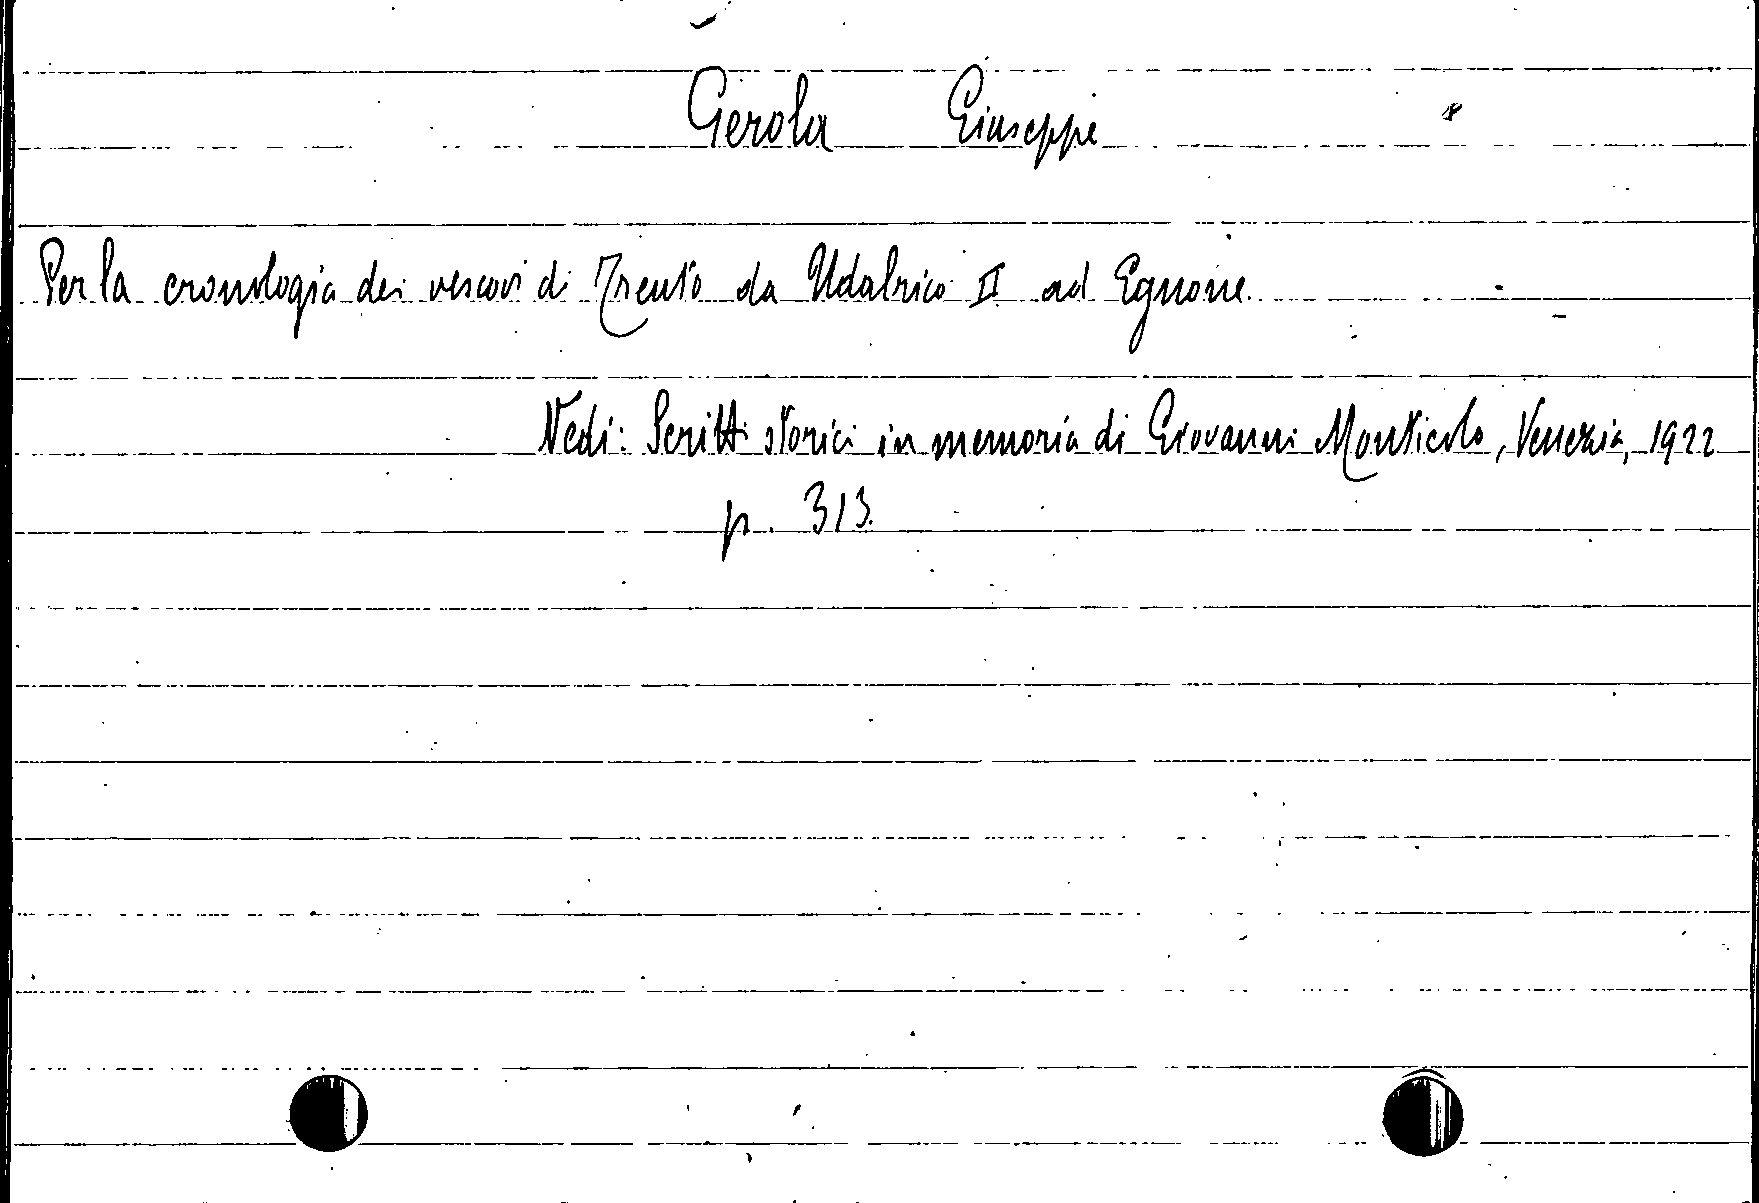 Gerola Giuseppe
Per la cronologia dei vescovi di Trento da Udalrico II ad Egnone.
Vedi: Scritti storici in memoria di Giovanni Monticolo, Venezia, 1922
p. 313.